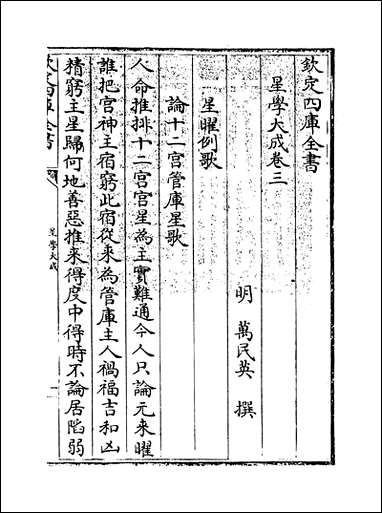 欽定四庫全書
星學大成卷三
明 萬民英 撰
星曜例歌
論十二宫管庫星歌
人命推排十二宫宫星為主實難通今人只論元来曜
誰把宫神主宿窮此宿從来為管庫主人禍福吉和凶
精窮主星歸何地善惡推来得度中得時不論居陷弱
星學大成